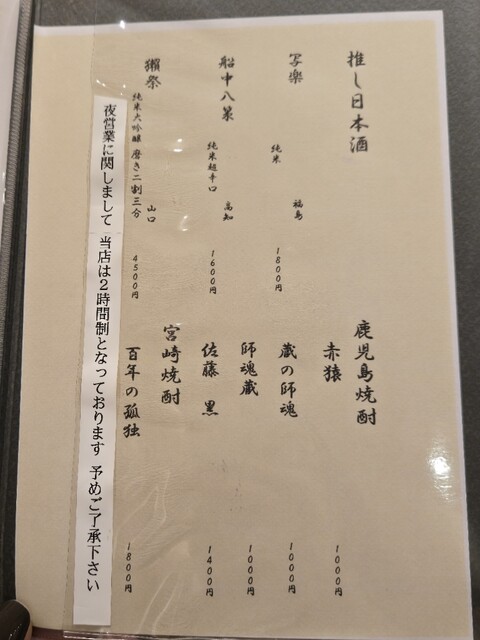 推し日本酒
写楽
純米
福島
1800円
船中八策
純米超辛口
高知
1600円
獺祭
純米大吟醸 磨き二割三分
山口
4500円
鹿児島焼酎
赤猿
1000円
蔵の師魂
1000円
師魂蔵
1000円
佐藤 黒
1400円
宮崎焼酎
百年の孤独
1800円
夜営業に関しまして 当店は2時間制となっております 予めご了承下さい